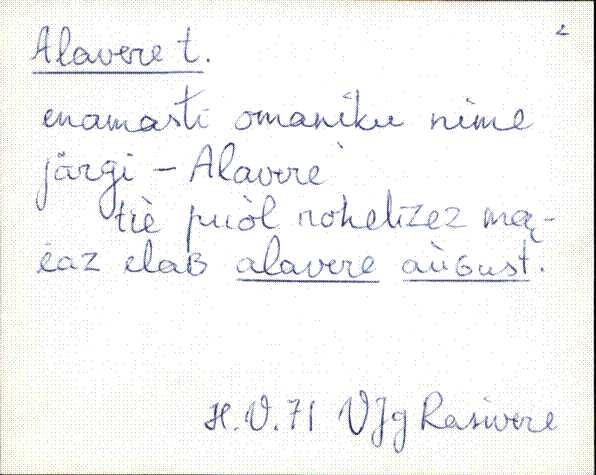 2
Alavere t.
enamasti omaniku nime
järgi – Alavere
tiè piiòl rohelizez ma-
jaz elaB alavere aùGust.
H.V.71 VJg Rasivere